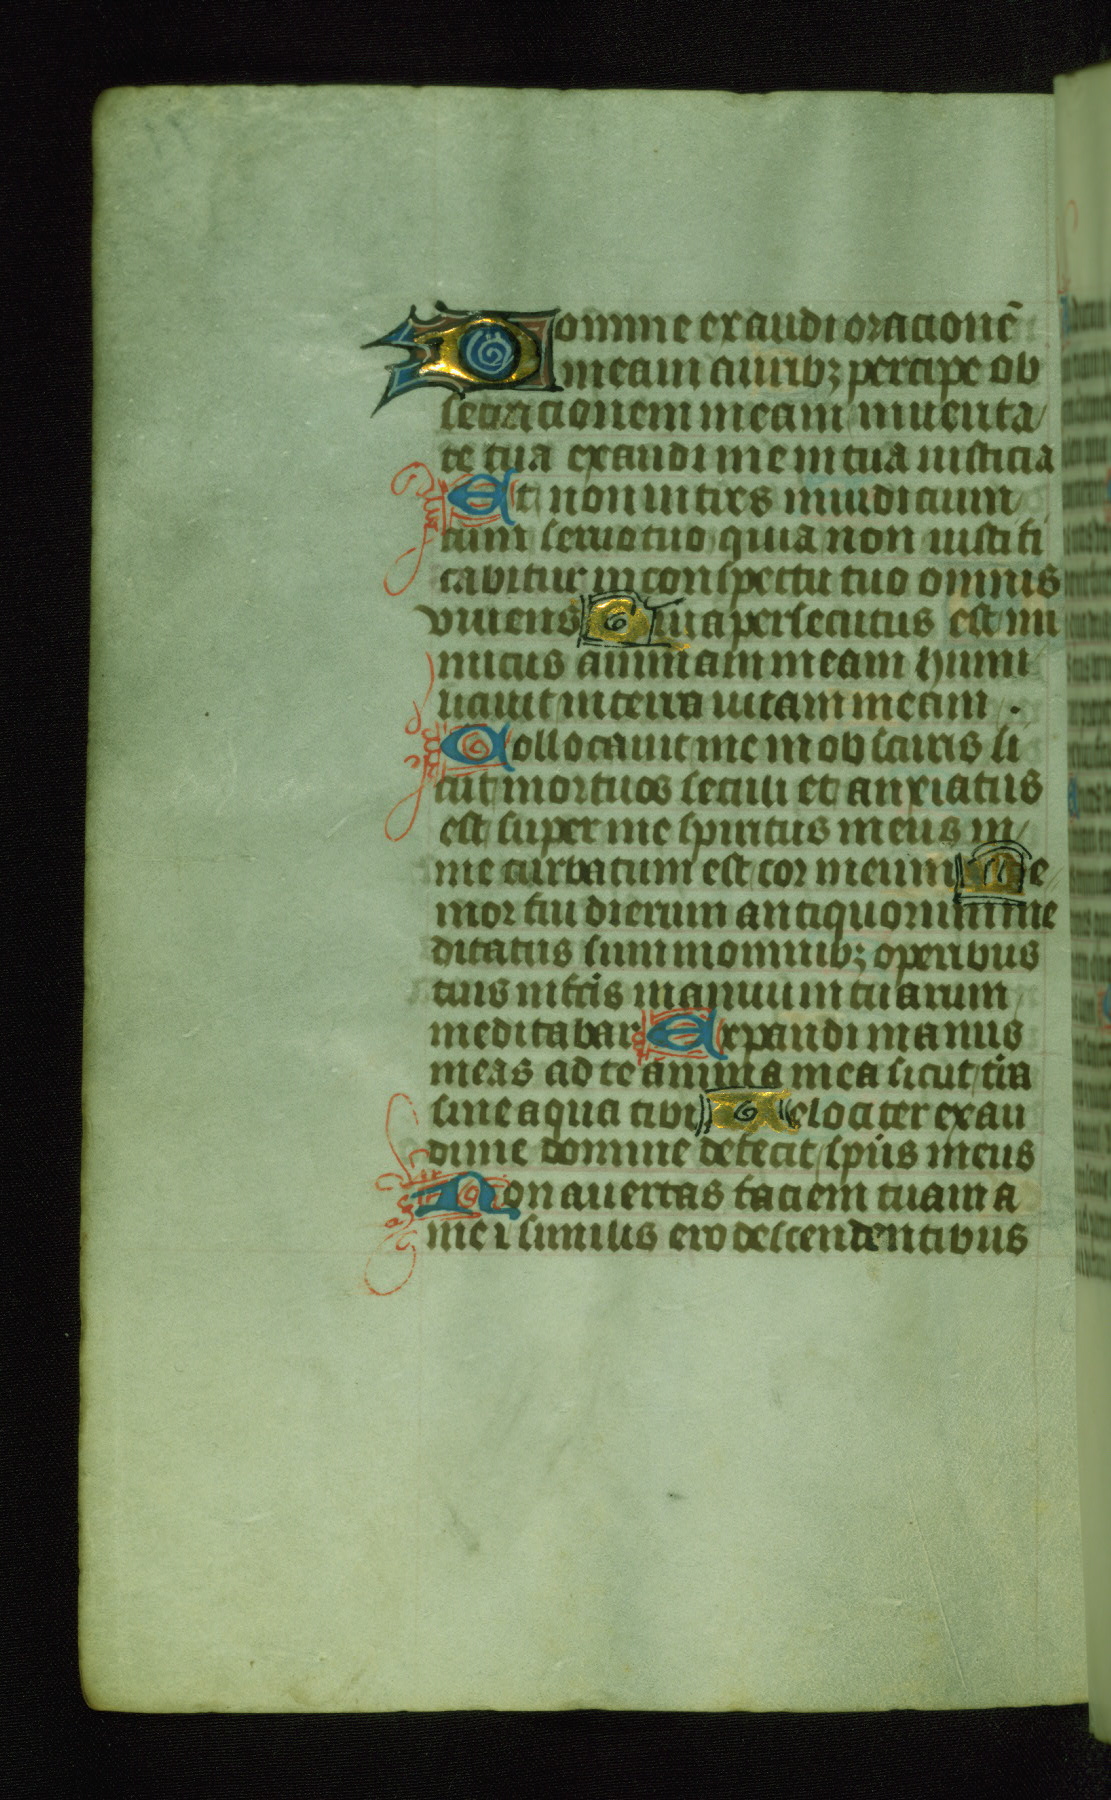 Domine exaudi oracionē
meam aurib; percipe ob
secracionem meam in uerita
te tua exaudi me in tua iusticia
Et non intres in iudicium
cum seruo tuo quia non iustifi
cabitur in conspectu tuo omnis
viuens Quia persecutus est ini
micus animam meam humi
liauit in terra uitam meam .
Collocauit me in obscuris si
cut mortuos seculi et anxiatus
est super me spiritus meus in
me turbatum est cor meum Me
mor fui dierum antiquorum me
ditatus sum in omnib; operibus
tuis in fcīs manuum tuarum
meditabar Expandi manus
meas ad te anima mea sicut tr̄a
sine aqua tibi Velociter exau
di me domine defecit sp̄us meus
Non auertas faciem tuam a
me i similis ero descendentibus